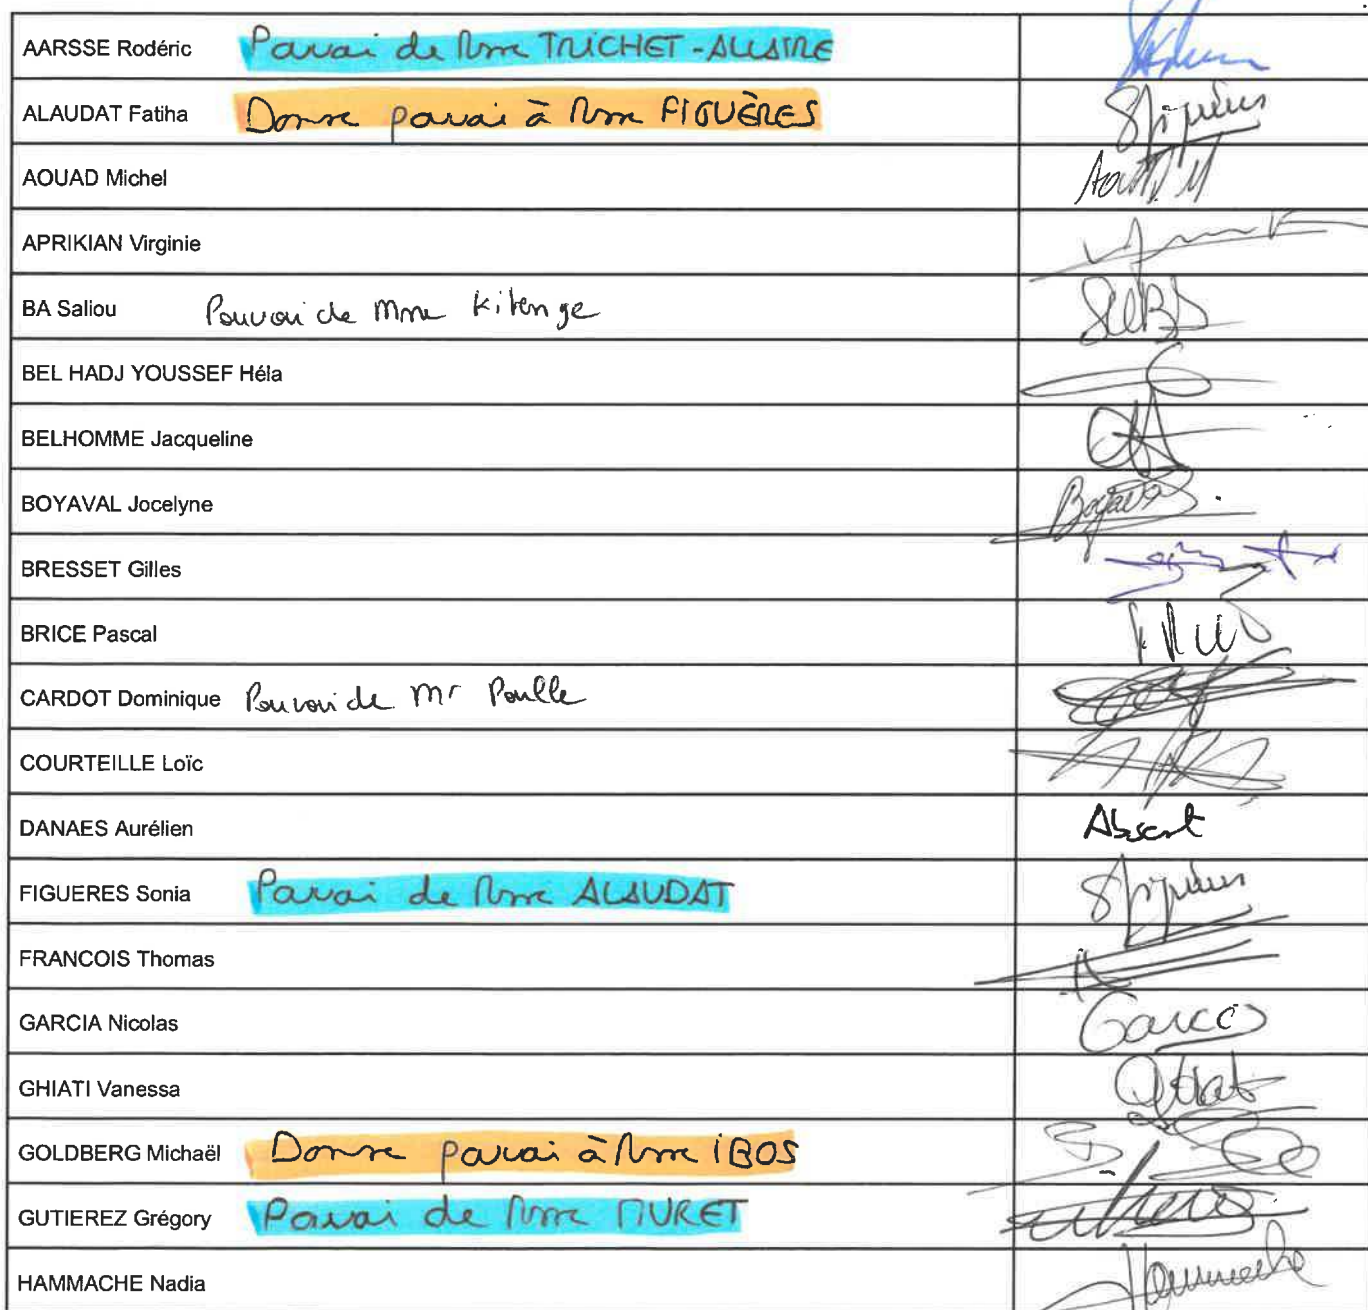 AARSSE Rodéric Pouvoir de Mme TRICHET-ALLAIRE
ALAUDAT Fatiha Donne pouvoir à Mme FIGUÈRES
AOUAD Michel Aouad M
APRIKIAN Virginie
BA Saliou Pouvoir de Mme Kitenge
BEL HADJ YOUSSEF Héla
BELHOMME Jacqueline
BOYAVAL Jocelyne Boyaval
BRESSET Gilles
BRICE Pascal
CARDOT Dominique Pouvoir de Mr Poulle
COURTEILLE Loïc
DANAES Aurélien Absent
FIGUERES Sonia Pouvoir de Mme ALAUDAT
FRANCOIS Thomas
GARCIA Nicolas Garcia
GHIATI Vanessa
GOLDBERG Michaël Donne pouvoir à Mme IBOS
GUTIEREZ Grégory Pouvoir de Mme MURET
HAMMACHE Nadia Hammache